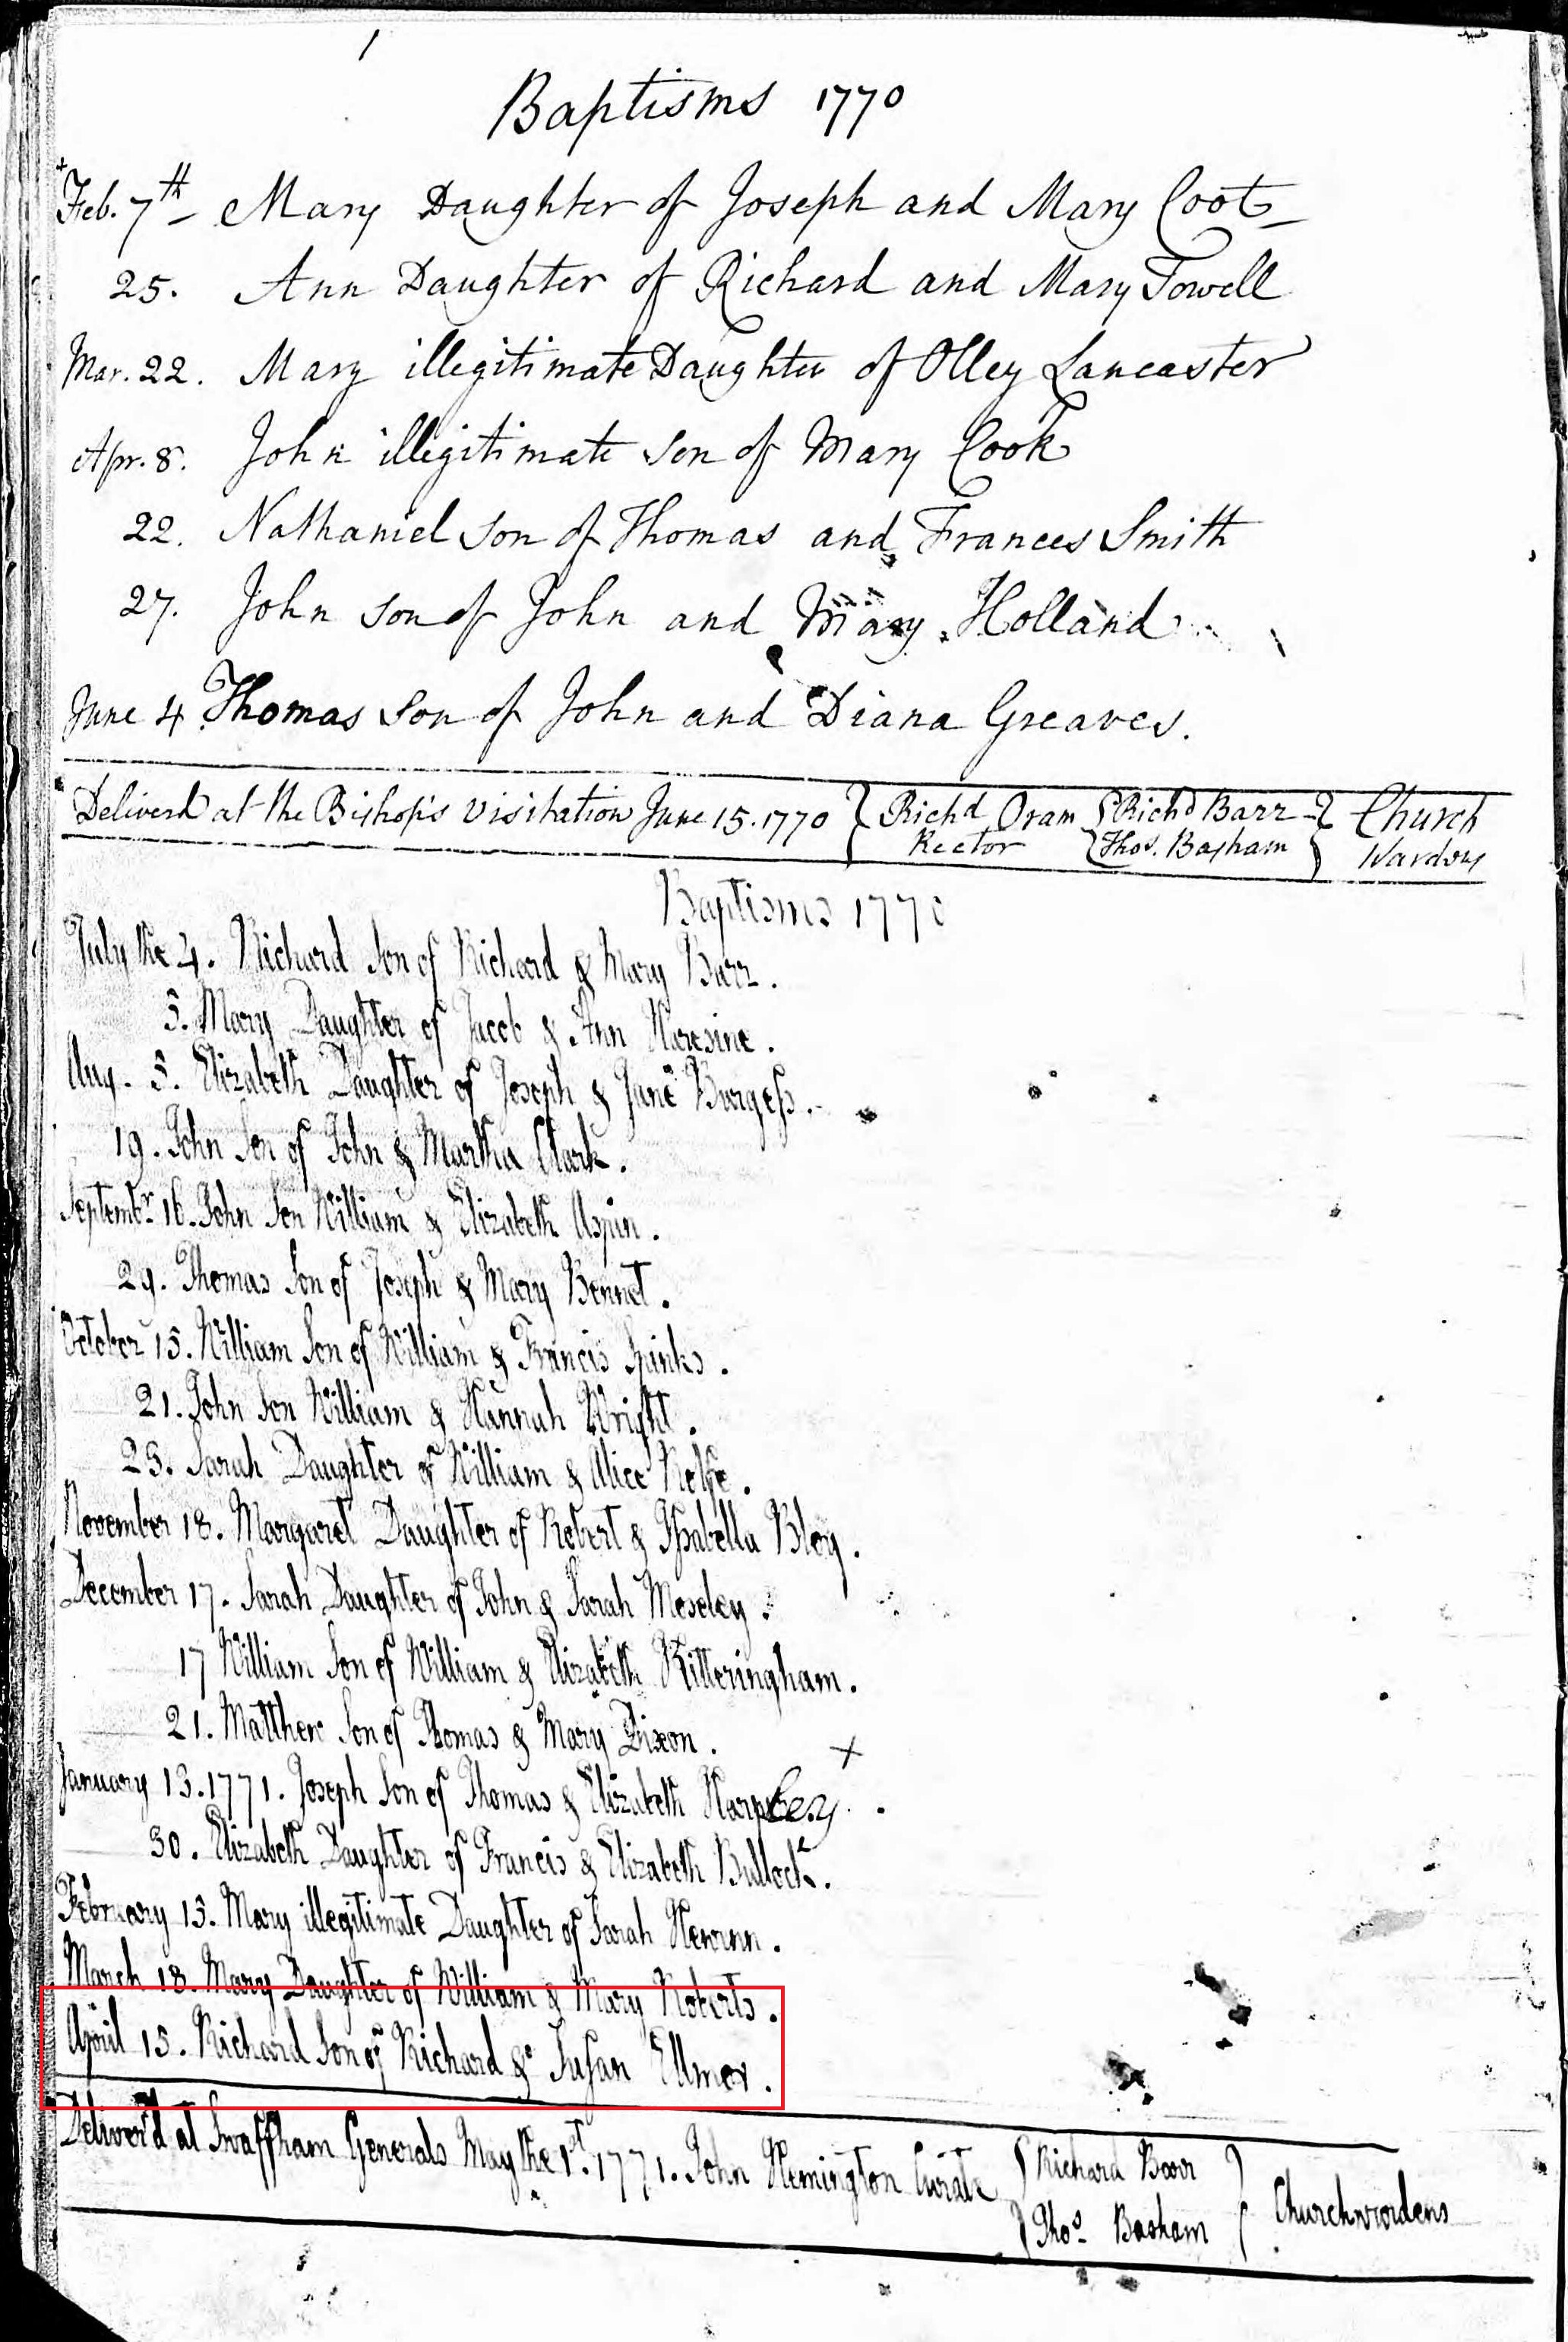 1
Baptisms 1770
Feb. 7th Mary Daughter of Joseph and Mary Coot
25. Ann Daughter of Richard and Mary Towell
Mar. 22. Mary illegitimate Daughter of Olley Lancaster
Apr. 8. John illegitimate son of Mary Cook
22. Nathaniel son of Thomas and Frances Smith
27. John son of John and Mary Holland
June 4 Thomas son of John and Diana Greaves.
Deliverd at the Bishops Visitation June 15. 1770 Richd Oram Richd Barr Church
Rector Thos. Basham Wardens
Baptisms 1770
July the 4. Richard Son of Richard & Mary Barr.
5. Mary Daughter of Jacob & Ann
Aug. 5. Elizabeth Daughter of Joseph & Jane Burgess.
19. John Son of John & Martha Clark.
Septembr. 16. John Son William & Elizabeth Aspin.
29. Thomas Son of Joseph & Mary Bennet.
October 15. William Son of William & Francis Spinks.
21. John Son William & Hannah Wright.
23. Sarah Daughter of William & Alice Rolfe.
November 18. Margaret Daughter of Robert & Isabella Bloy.
December 17. Sarah Daughter of John & Sarah Moseley.
17 William Son of William & Elizabeth Kitteringham.
21. Matthew Son of Thomas & Mary Dixon.
January 13. 1771. Joseph Son of Thomas & Elizabeth Harpley.
30. Elizabeth Daughter of Francis & Elizabeth Bullock.
February 13. Mary illegitimate Daughter of Sarah
March 18. Mary Daughter of William & Mary Roberts.
April 15. Richard Son of Richard & Susan Ellmer.
Deliver'd at Swaffham Generals May the 1st. 1771. John Hemington Curate Richard Barr
Thos. Basham Churchwardens